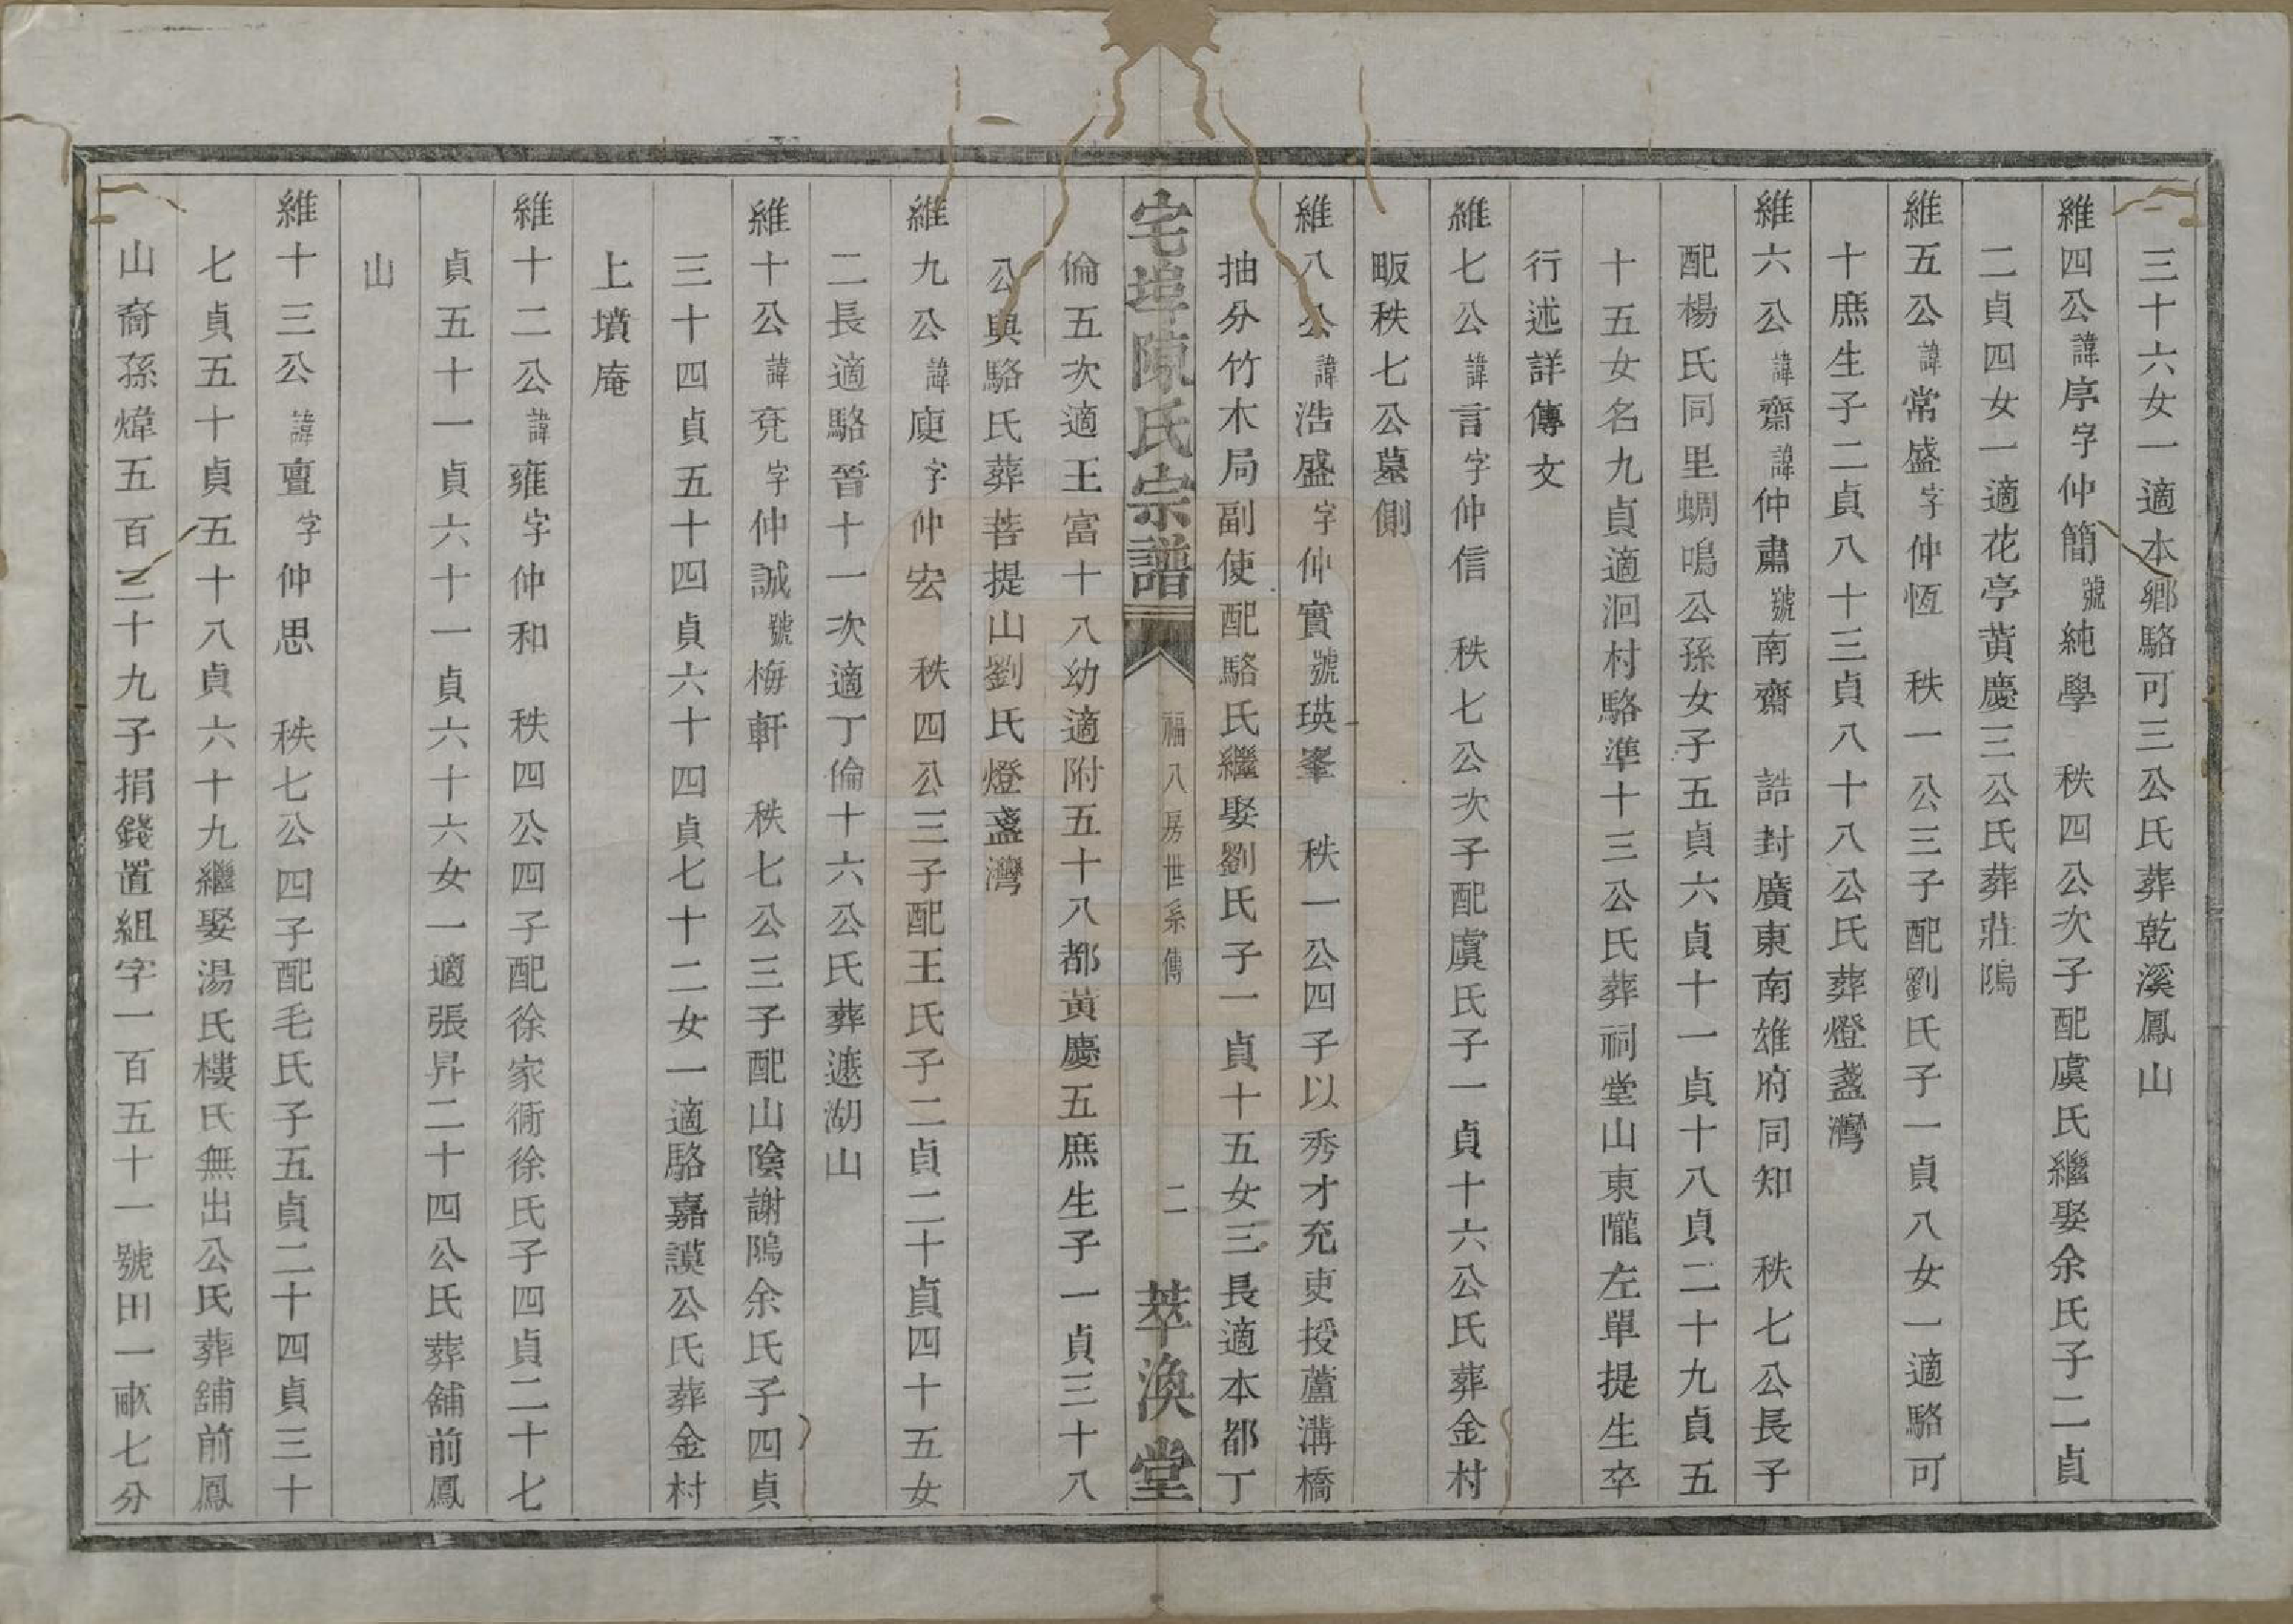 三十六女一適本鄉駱可三公氏葬乾溪鳳山
維四公諱序字仲簡號純學　秩四公次子配虞氏繼娶余氏子二貞
二貞四女一適花亭黃慶三公氏葬莊隖
維五公諱常盛字仲恆　秩一公三子配劉氏子一貞八女一適駱可
十庶生子二貞八十三貞八十八公氏葬燈盞灣
維六公諱齋諱仲肅號南齋　誥封廣東南雄府同知　秩七公長子
配楊氏同里蜩鳴公孫女子五貞六貞十一貞十八貞二十九貞五
十五女名九貞適洄村駱準十三公氏葬祠堂山東隴左單提生卒
行述詳傳文
維七公諱言字仲信　秩七公次子配虞氏子一貞十六公氏葬金村
畈秩七公墓側
維八公諱浩盛字仲實號瑛峯　秩一公四子以秀才充吏授蘆溝橋
抽分竹木局副使配駱氏繼娶劉氏子一貞十五女三長適本都丁
宅埠陳氏宗譜　福八房世系傳　二　萃渙堂
倫五次適王富十八幼適附五十八都黃慶五庶生子一貞三十八
公與駱氏葬菩提山劉氏燈盞灣
維九公諱庾字仲宏　秩四公三子配王氏子二貞二十貞四十五女
二長適駱晉十一次適丁倫十六公氏葬遮湖山
維十公諱兗字仲誠號梅軒　秩七公三子配山陰謝隖余氏子四貞
三十四貞五十四貞六十四貞七十二女一適駱嘉謨公氏葬金村
上墳庵
維十二公諱雍字仲和　秩四公四子配徐家衕徐氏子四貞二十七
貞五十一貞六十一貞六十六女一適張昇二十四公氏葬舖前鳳
山
維十三公諱亶字仲思　秩七公四子配毛氏子五貞二十四貞三十
七貞五十貞五十八貞六十九繼娶湯氏樓氏無出公氏葬舖前鳳
山裔孫煒五百三十九子捐錢置組字一百五十一號田一畝七分